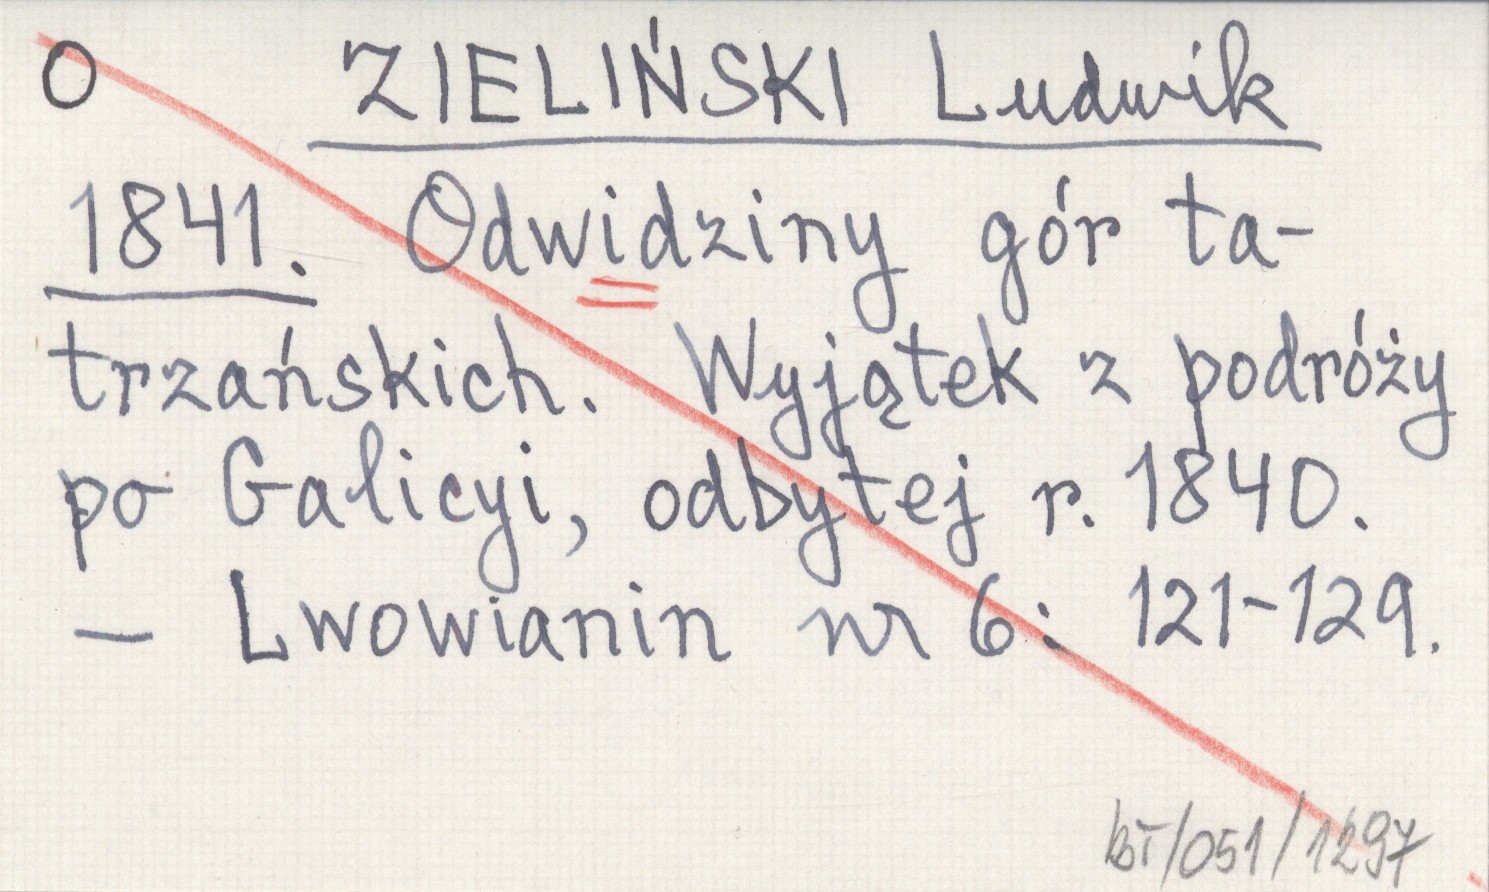 O ZIELIŃSKI Ludwik
1841. Odwidziny gór ta-
trzańskich. Wyjątek z podróży
po Galicyi, odbytej r. 1840.
— Lwowianin nr 6: 121-129.
BT/051/1297